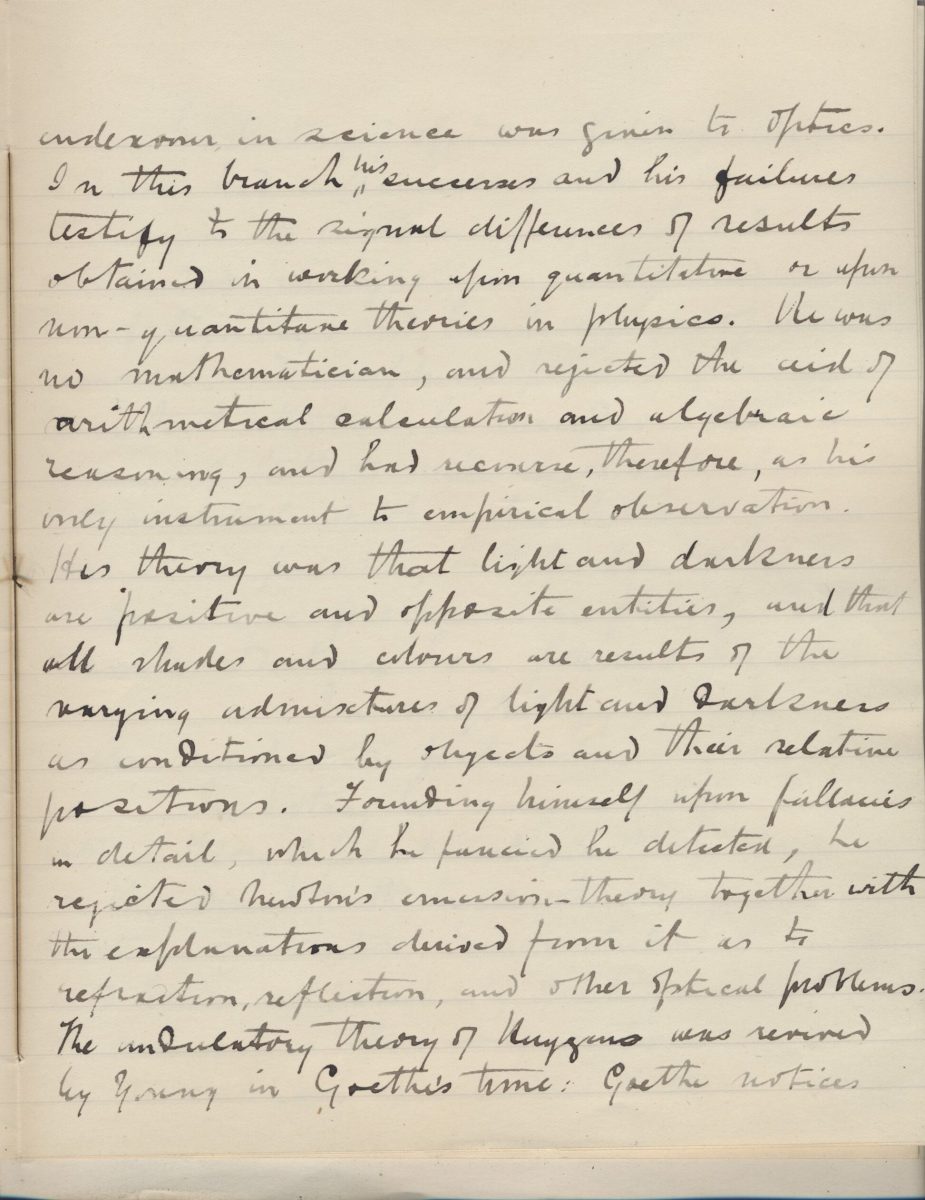 endeavour in science was given to optics.
In this branch his successes and his failures
testify to the signal differences of results
obtained in working upon quantitative or upon
non-quantitave theories in physics. He was
no mathematician, and rejected the aid of
arithmetical calculation and algebraic
reasoning, and had recourse, therefore, as his
only instrument to empirical observation.
His theory was that light and darkness
are positive and opposite entities, and that
all shades and colours are results of the
varying admixtures of light and darkness
as conditioned by objects and their relative
positions. Founding himself upon fallacies
in detail, which he fancied he detected, he
rejected Newton's emission-theory together with
the explanations derived from it as to
refraction, reflection, and other optical problems.
The undulatory theory of Huygens was revived
by Young in Goethe's time: Goethe notices